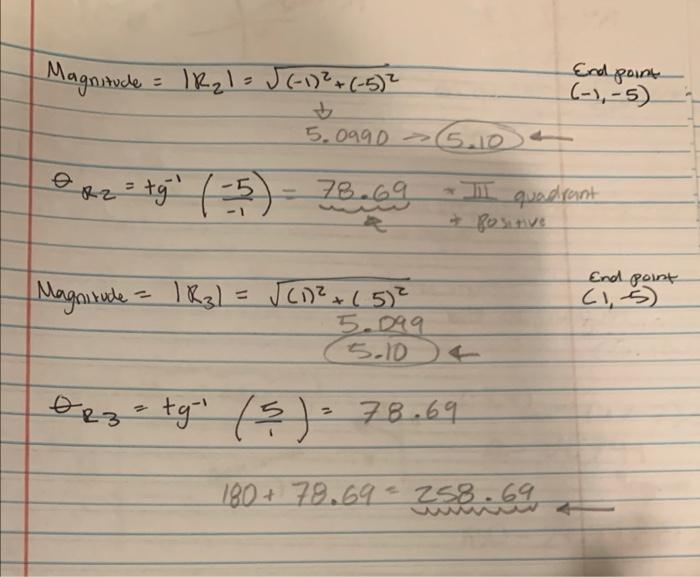 Magnitude = |R₂| = √(-1)² + (-5)²
End point
(-1, -5)
↓
5.0990 → 5.10 ←
θ R2 = tg⁻¹ (-5/-1) = 78.69
III quadrant
+ Positive
Magnitude = |R₃| = √(1)² + (5)²
End point
(1, -5)
5.099
5.10 ←
θ R3 = tg⁻¹ (5/1) = 78.69
180 + 78.69 = 258.69 ←